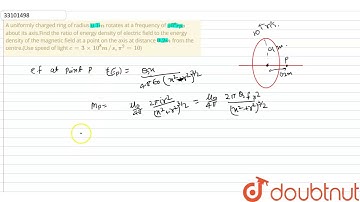 33101498
A uniformly charged ring of radius 0.1 m rotates at a frequency of 10⁴ rps
about its axis.Find the ratio of energy density of electric field to the energy
density of the magnetic field at a point on the axis at distance 0.2 m from the
centre.(Use speed of light c = 3 × 10⁸ m/s, π² = 10)
10⁴ rps
0.1 m
P
0.2m
ef at point P (Ep) = Qx / 4πε₀ (x²+r²)^3/2
Mp = μ₀/4π 2πir²/(x²+r²)^3/2 = μ₀/4π 2πQfr²/(x²+r²)^3/2
doubtnut